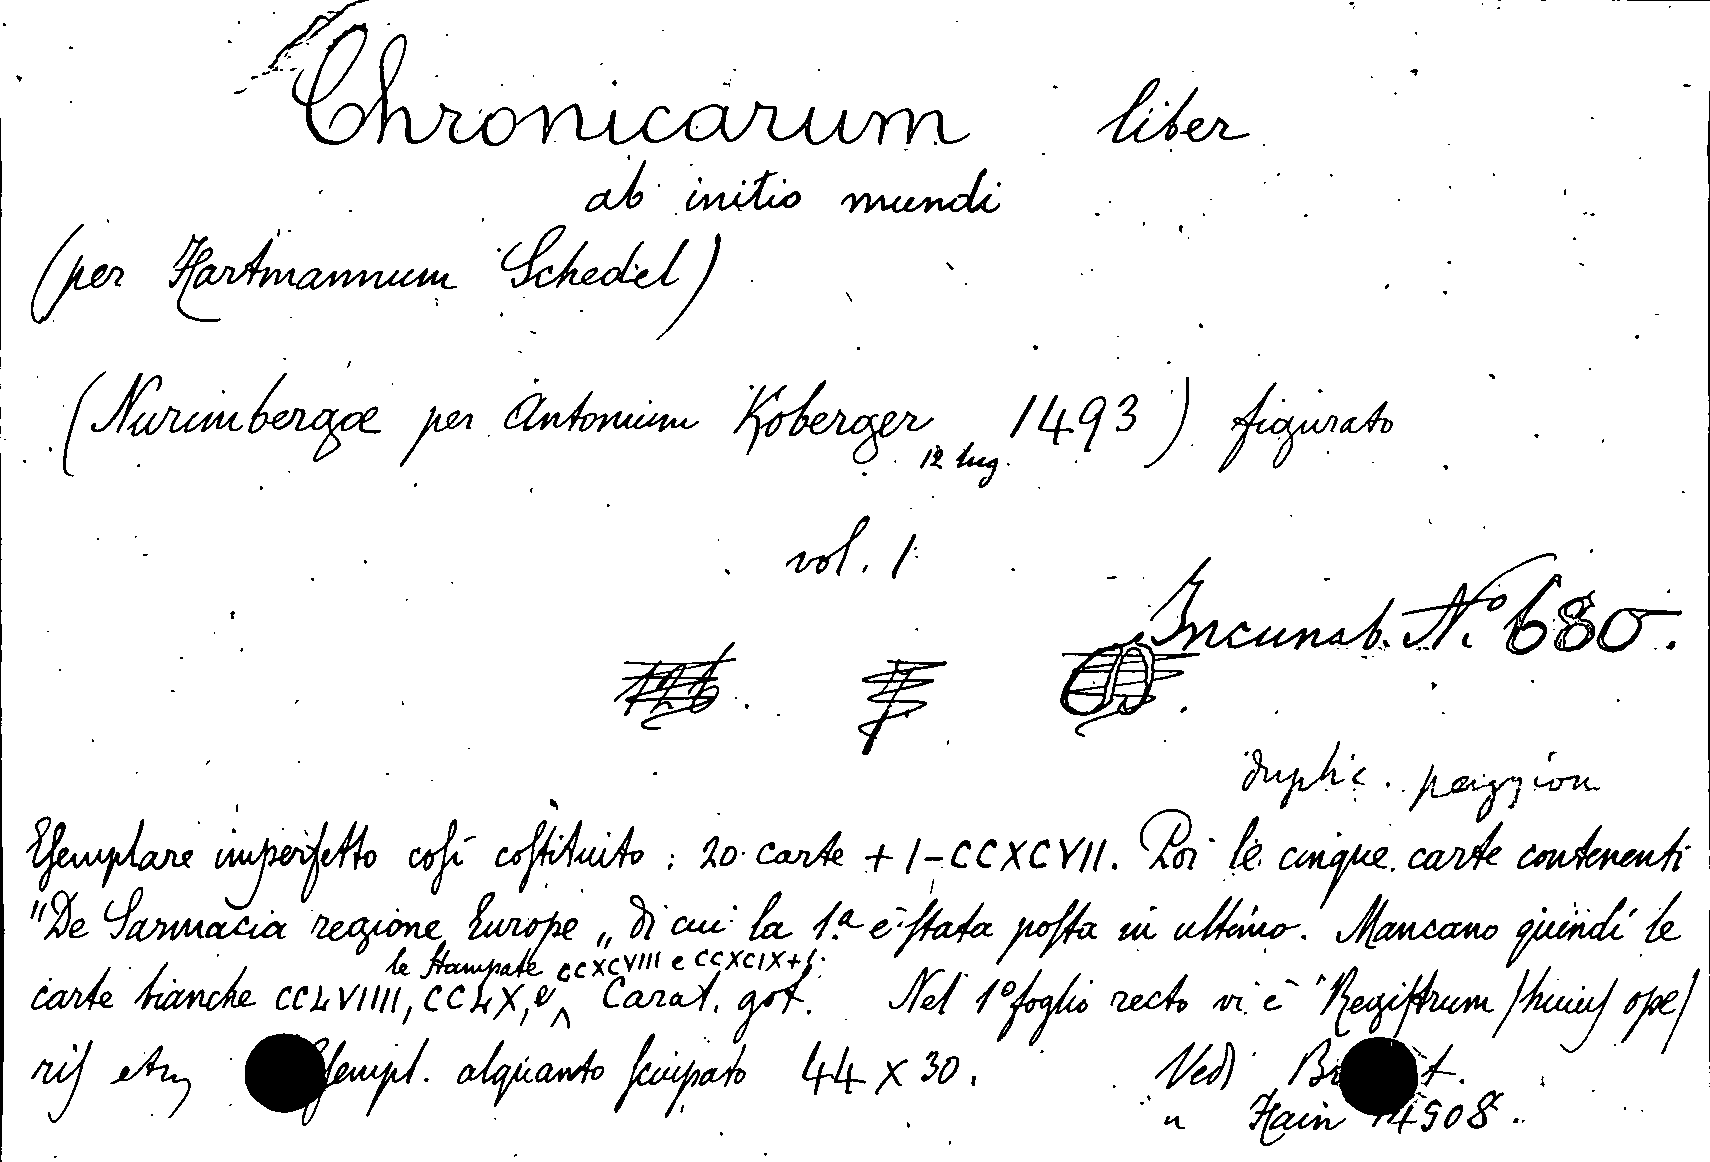 Chronicarum liber
ab initio mundi
(per Hartmannum Schedel)
(Nurimbergæ per Antonium Koberger 12 lug. 1493) figurato
vol. 1
Incunab. N.° 680.
duplic.
Eſemplare imperfetto coſì coſtituito : 20 carte + I-CCXCVII. Poi le cinque carte contenenti
"De Sarmacia regione Europe„ di cui la 1.ª è ſtata poſta in ultimo. Mancano quindi le
le ſtampate CCXCVIII e CCXCIX+1.
carte bianche CCLVIIII, CCLX, e ^ Carat. got. Nel 1° foglio recto vi è "Regiſtrum / huiuſ ope/
riſ etc ſempl. alquanto ſciupato 44 x 30. Vedi
" Hain 14508.